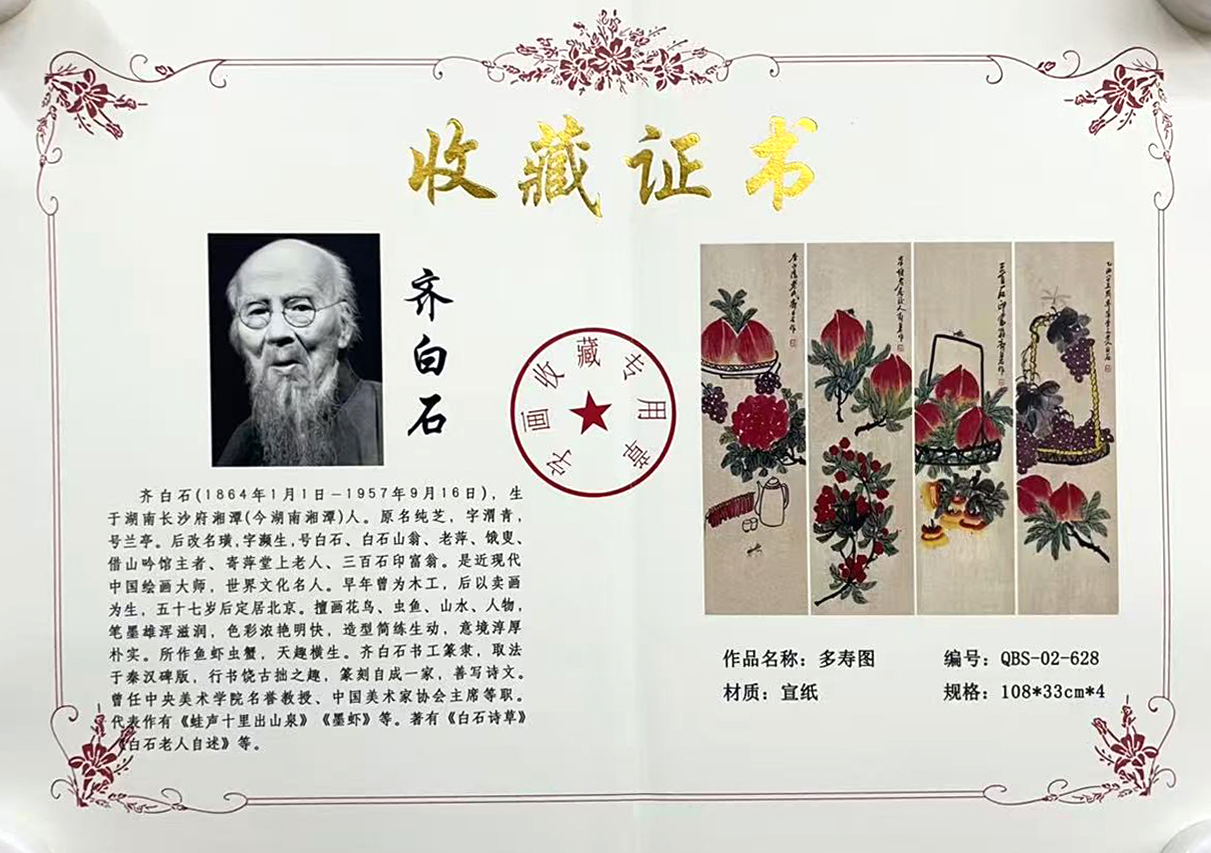 收藏证书
齐白石
字画收藏专用章
齐白石(1864年1月1日-1957年9月16日)，生
于湖南长沙府湘潭(今湖南湘潭)人。原名纯芝，字渭青，
号兰亭。后改名璜,字濒生,号白石、白石山翁、老萍、饿叟、
借山吟馆主者、寄萍堂上老人、三百石印富翁。是近现代
中国绘画大师，世界文化名人。早年曾为木工，后以卖画
为生，五十七岁后定居北京。擅画花鸟、虫鱼、山水、人物，
笔墨雄浑滋润，色彩浓艳明快，造型简练生动，意境淳厚
朴实。所作鱼虾虫蟹，天趣横生。齐白石书工篆隶，取法
于秦汉碑版，行书饶古拙之趣，篆刻自成一家，善写诗文。
曾任中央美术学院名誉教授、中国美术家协会主席等职。
代表作有《蛙声十里出山泉》《墨虾》等。著有《白石诗草》
《白石老人自述》等。
作品名称：多寿图
编号：QBS-02-628
材质：宣纸
规格：108*33cm*4